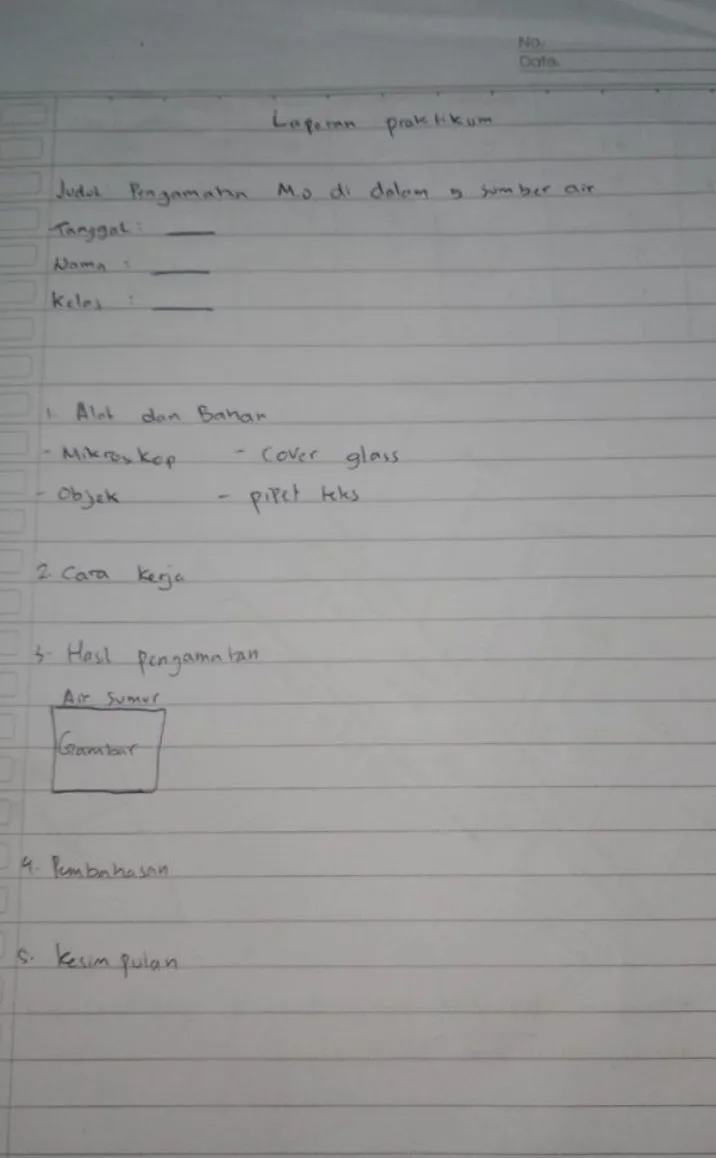 No.
Date
Laporan praktikum
Judul Pengamatan M.O di dalam 5 sumber air
Tanggal :
Nama :
Kelas :
1. Alat dan Bahan
- Mikroskop - Cover glass
- Objek - pipet teks
2. Cara kerja
3. Hasil pengamatan
Air sumur
Gambar
4. Pembahasan
5. Kesimpulan